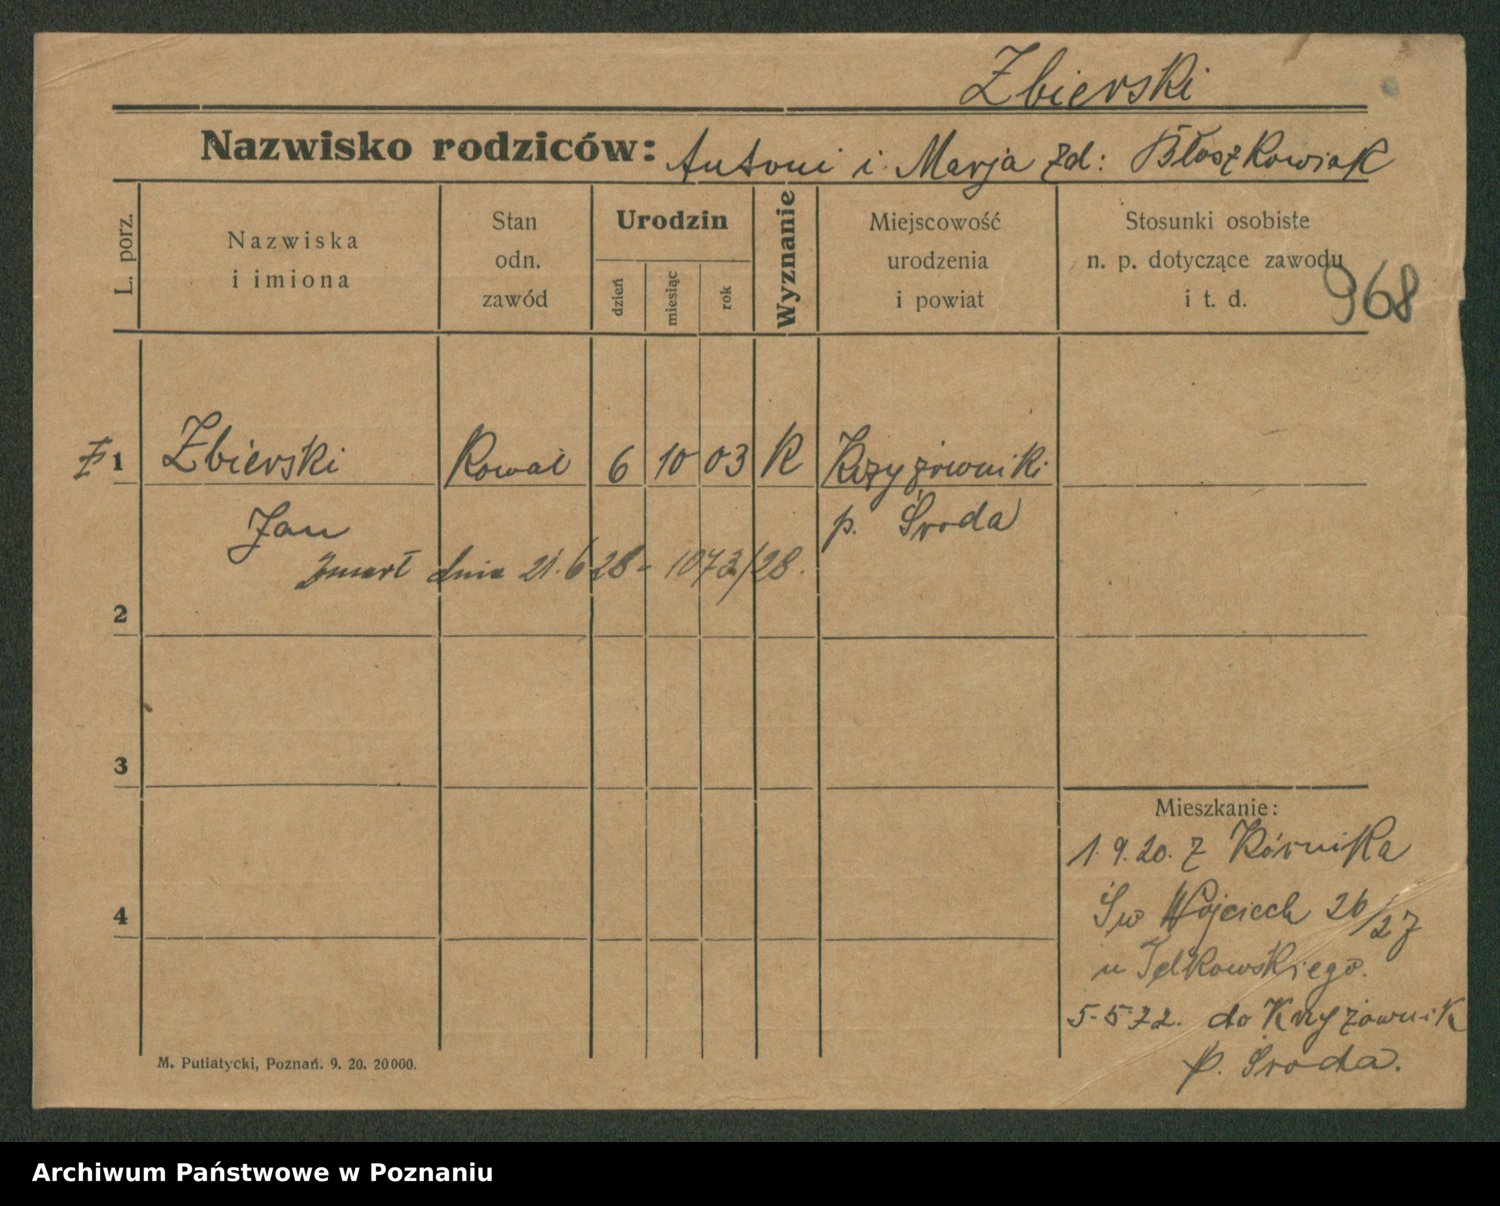 Zbierski
Nazwisko rodziców: Antoni i Marja zd: Błoszkowiak
L. porz.
Nazwiska
i imiona
Stan
odn.
zawód
Urodzin
dzień
miesiąc
rok
Wyznanie
Miejscowość
urodzenia
i powiat
Stosunki osobiste
n. p. dotyczące zawodu
i t. d.
968
1 Zbierski Kowal 6 10 03 K Krzyżowniki
Jan p. Środa
Zmarł dnia 21.6 28 - 1073/28.
2
3
4
Mieszkanie:
1.9.20. z Kórnika
Św Wojciech 26/27
u
5-5-22. do Krzyżownik
p. Środa.
M. Putiatycki, Poznań. 9. 20. 20000.
Archiwum Państwowe w Poznaniu